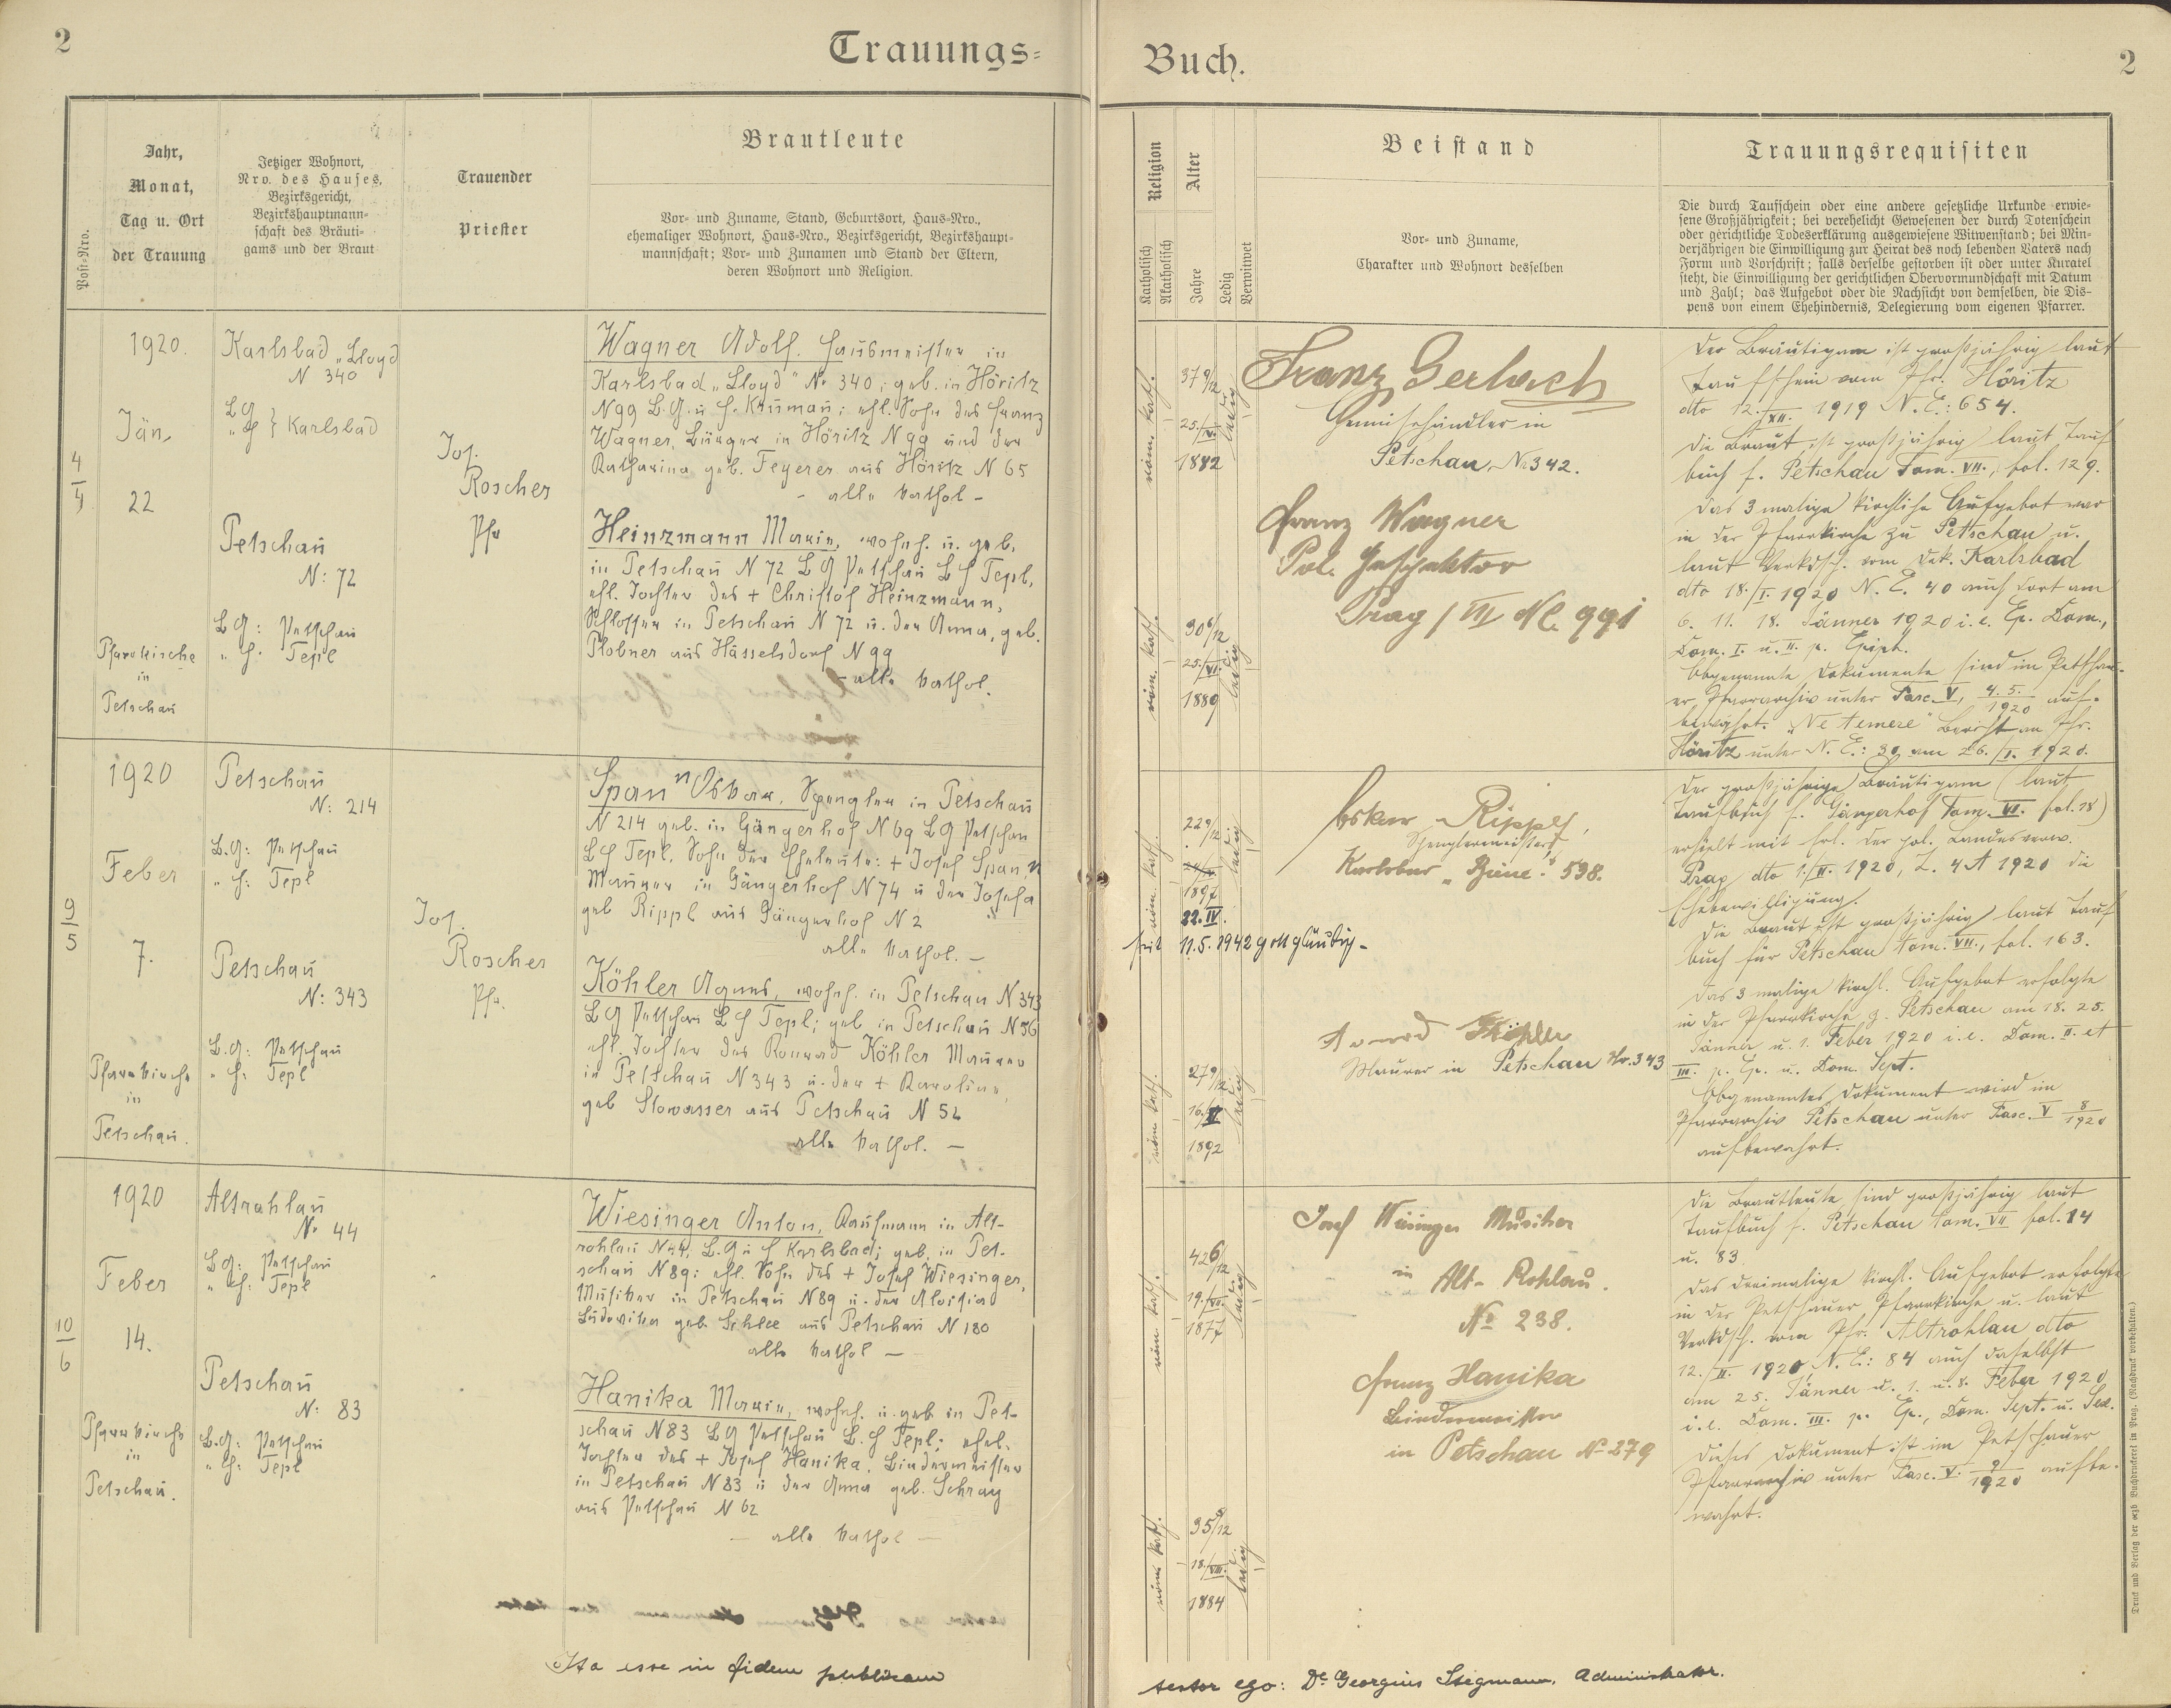 2
Trauungs=
Post=Nro.
Jahr,
Monat,
Tag u. Ort
der Trauung
Jetziger Wohnort,
Nro. des Hauses,
Bezirksgericht,
Bezirkshauptmann=
schaft des Bräuti=
gams und der Braut
Trauender
Priester
Brautleute
Vor= und Zuname, Stand, Geburtsort, Haus=Nro.,
ehemaliger Wohnort, Haus=Nro., Bezirksgericht, Bezirkshaupt=
mannschaft; Vor= und Zunamen und Stand der Eltern,
deren Wohnort und Religion.
4
4
1920.
Jän.
22
Pfarrkirche
in
Petschau
Karlsbad „Lloyd
N 340
Karlsbad
Petschau
N: 72
B.G: Petschau
„ H: Tepl
Jos.
Roscher
Pfr
Wagner Adolf, Hausmeister in
Karlsbad „Lloyd" No 340; geb. in Höritz
N 99 B.G. u H. Kruman; ehl. Sohn des Franz
Wagner, Bürger in Höritz N 99 und der
Katharina geb. Feyerer aus Höritz N 65
– alle kathol –
Heinzmann Marie, wohnh. u. geb.
in Petschau N 72 BG Petschau BH Tepl,
ehl. Tochter des + Christof Heinzmann,
Schlosser in Petschau N 72 u. der Anna, geb.
Plobner aus Hässelsdorf N 99
– alle kathol.
9
5
1920
Feber
7.
Pfarrkirche
in
Petschau.
Petschau
N: 214
B.G: Petschau
„ H: Tepl
Petschau
N: 343
B.G: Petschau
„ H: Tepl
Jos.
Roscher
Pfr.
Spann Oskar, Spengler in Petschau
N 214 geb. in Gängerhof N 69 BG Petschau
BH Tepl, Sohn der Eheleute: + Josef Spann
Maurer in Gängerhof N 74 u der Josefa
geb Rippl aus Gängerhof N 2
alle kathol. –
Köhler Agnes, wohnh. in Petschau N 343
BG Petschau BH Tepl; geb in Petschau N 36
ehl. Tochter des Konrad Köhler Maurer
in Petschau N 343 u. der + Karoline,
geb Slowasser aus Petschau N 52
alle kathol. –
10
6
1920
Feber
14.
Pfarrkirche
in
Petschau.
Altrohlau
No 44
BG: Petschau
„ H: Tepl
Petschau
N: 83
B.G: Petschau
„ H: Tepl
Wiesinger Anton, Kaufmann in Alt-
rohlau N 44; B.G u H Karlsbad; geb. in Pet-
schau N 89; ehl. Sohn des + Josef Wiesinger,
Musiker in Petschau N 89 u. der Aloisia
Ludovika geb. Schlee aus Petschau N 180
alle kathol –
Hanika Marie, wohnh. u. geb in Pet-
schau N 83 BG Petschau B.H Tepl; ehel.
Tochter des + Josef Hanika, Bindermeister
in Petschau N 83 u der Anna geb. Schray
aus Petschau N 62
– alle kathol –
Ita esse in fidem publicam
Buch.
2
Religion
Katholisch
Akatholisch
Alter
Jahre
Ledig
Verwitwet
Beistand
Vor= und Zuname,
Charakter und Wohnort desselben
Trauungsrequisiten
Die durch Taufschein oder eine andere gesetzliche Urkunde erwie=
sene Großjährigkeit; bei verehelicht Gewesenen der durch Totenschein
oder gerichtliche Todeserklärung ausgewiesene Witwenstand; bei Min=
derjährigen die Einwilligung zur Heirat des noch lebenden Vaters nach
Form und Vorschrift; falls derselbe gestorben ist oder unter Kuratel
steht, die Einwilligung der gerichtlichen Obervormundschaft mit Datum
und Zahl; das Aufgebot oder die Nachsicht von demselben, die Dis=
pens von einem Ehehindernis, Delegierung vom eigenen Pfarrer.
röm. kath.
37 9/12
1882
ledig
röm. kath.
30 6/12
25./VI.
1889
ledig
Franz Gerlach
Gemisehändler in
Petschau, No 342.
Franz Wagner
Pol. Inspektor
Prag / VII No 991
Der Bräutigam ist großjährig laut
Taufschein vom Pfr. Höritz
dto 12./XII. 1919 N. E.: 654.
Die Braut ist großjährig laut Tauf
buch f. Petschau Tom. VII., fol. 129.
Das 3 malige kirchliche Aufgebot war
in der Pfarrkirche zu Petschau u.
laut Verkdsch. vom Dek. Karlsbad
dto 18./I. 1920 N. E. 40 auch dort am
6. 11. 18. Jänner 1920 i. e. Ep. Dom.,
Dom. I. u. II. p. Epiph.
Obgenannte Dokumente sind im Petschau-
er Pfarrarchiv unter Fasc. V, 4. 5./1920 auf-
bewahrt. „Ne temere" Bericht an Pfr.
Höritz unter N. E.: 30 am 26./I. 1920.
röm. kath.
22 9/12
1897
22. IV.
ledig
seit 11.5.1942 gottgläubig –
röm kath.
27 9/12
1892
ledig
Oskar Rippl,
Spenglermeister
Karlsbad „Biene" 598.
Köhler
Maurer in Petschau Nr. 343
Der großjährige Bräutigam (laut
Taufbuch f. Gängerhof Tom. VI. fol. 28)
erhielt mit Erl. der pol. Landesverw.
Prag dto 1./II. 1920, Z. 4 A 1920 die
Ehebewilligung.
Die Braut ist großjährig laut Tauf
buch für Petschau tom. VII., fol. 163.
Das 3 malige kirchl. Aufgebot erfolgte
in der Pfarrkirche z. Petschau am 18. 25.
Jänner u. 1. Feber 1920 i. e. Dom. II. et
III. p. Ep. u. Dom. Sept.
Obgenanntes Dokument wird im
Pfarrarchiv Petschau unter Fasc. V 8/1920
aufbewahrt.
röm. kath.
42 6/12
19./VII.
1877
ledig
röm. kath.
35 /12
18./VIII.
1884
ledig
Josef Wiesinger Musiker
in Alt-Rohlau.
No 238.
Franz Hanika
Bindermeister
in Petschau No 279
Die Brautleute sind großjährig laut
Taufbuch f. Petschau tom. VII fol. 14
u. 83
Das dreimalige kirchl. Aufgebot erfolgte
in der Petschauer Pfarrkirche u. laut
Verkdsch. vom Pfr. Altrohlau dto
12./II. 1920, N. E.: 84 auch daselbst
am 25. Jänner u. 1. u. 8. Feber 1920
i. e. Dom. III. p. Ep., Dom. Sept. u. Sex.
Dieses Dokument ist im Petschauer
Pfarrarchiv unter Fasc. V. 9/1920 aufbe-
wahrt.
testor ego: Dr. Georgius Stegmann, Administrator.
Druck und Verlag der erzb Buchdruckerei in Prag. (Nachdruck vorbehalten.)